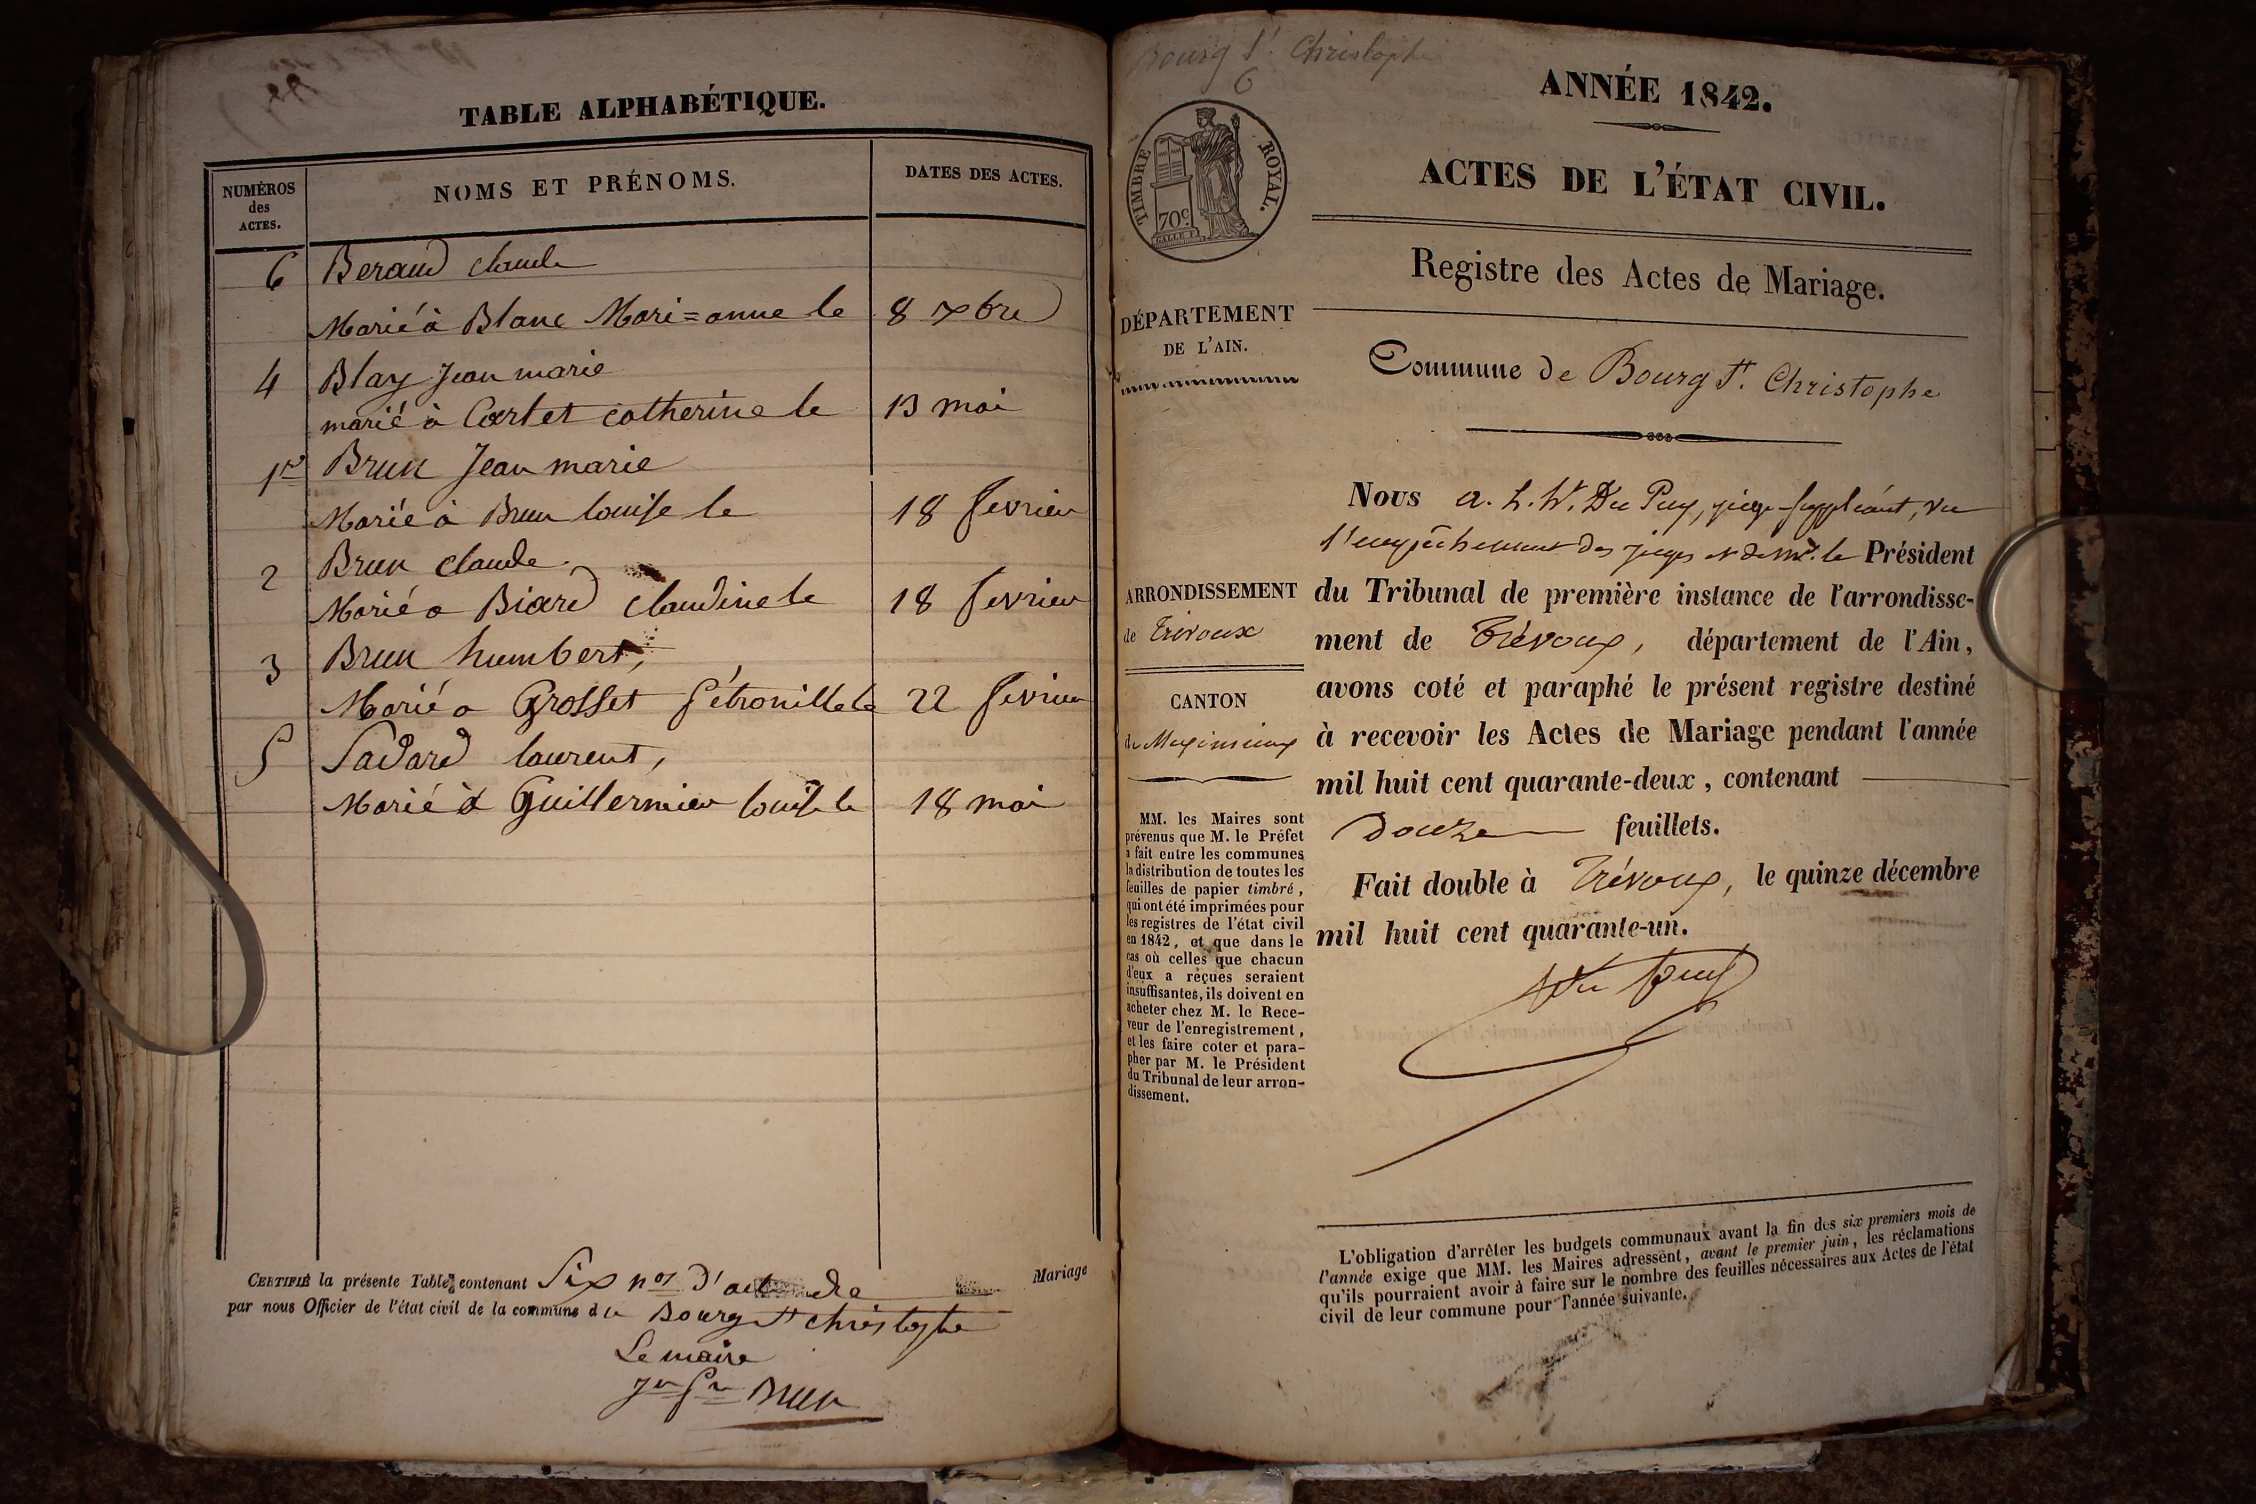 TABLE ALPHABÉTIQUE.
NUMÉROS
des
ACTES.
NOMS ET PRÉNOMS.
DATES DES ACTES.
6 Beraud claude
Marié à Blanc Mari=anne le 8 xbre
4 Blay Jean marie
marié à Cartet catherine le 13 mai
1er Brun Jean marie
Marié à Brun louise le 18 fevrier
2 Brun claude
Marié a Biard claudine le 18 fevrier
3 Brun humbert,
Marié a Grosset Pétronille le 22 fevrier
5 Sadard laurent,
Marié à Guillermier louise le 18 mai
CERTIFIÉ la présente Table, contenant Six nos Mariage
par nous Officier de l'état civil de la commune de Bourg St christophe
Le maire
Brun
Bourg St Christophe
6
TIMBRE ROYAL.
70c
ANNÉE 1842.
ACTES DE L'ÉTAT CIVIL.
Registre des Actes de Mariage.
DÉPARTEMENT
DE L'AIN.
Commune de Bourg St. Christophe
Nous a. h. W. Du Puy, juge suppléant, vu
l'empêchement des juges et de Mr. le Président
du Tribunal de première instance de l'arrondisse-
ment de Trévoux, département de l'Ain,
avons coté et paraphé le présent registre destiné
à recevoir les Actes de Mariage pendant l'année
mil huit cent quarante-deux, contenant
douze feuillets.
Fait double à Trévoux, le quinze décembre
mil huit cent quarante-un.
Du Puy
ARRONDISSEMENT
de Trévoux
CANTON
de Meximieux
MM. les Maires sont
prévenus que M. le Préfet
a fait entre les communes
la distribution de toutes les
feuilles de papier timbré,
qui ont été imprimées pour
les registres de l'état civil
en 1842, et que dans le
cas où celles que chacun
d'eux a reçues seraient
insuffisantes, ils doivent en
acheter chez M. le Rece-
veur de l'enregistrement,
et les faire coter et para-
pher par M. le Président
du Tribunal de leur arron-
dissement.
L'obligation d'arrêter les budgets communaux avant la fin des six premiers mois de
l'année exige que MM. les Maires adressent, avant le premier juin, les réclamations
qu'ils pourraient avoir à faire sur le nombre des feuilles nécessaires aux Actes de l'état
civil de leur commune pour l'année suivante.